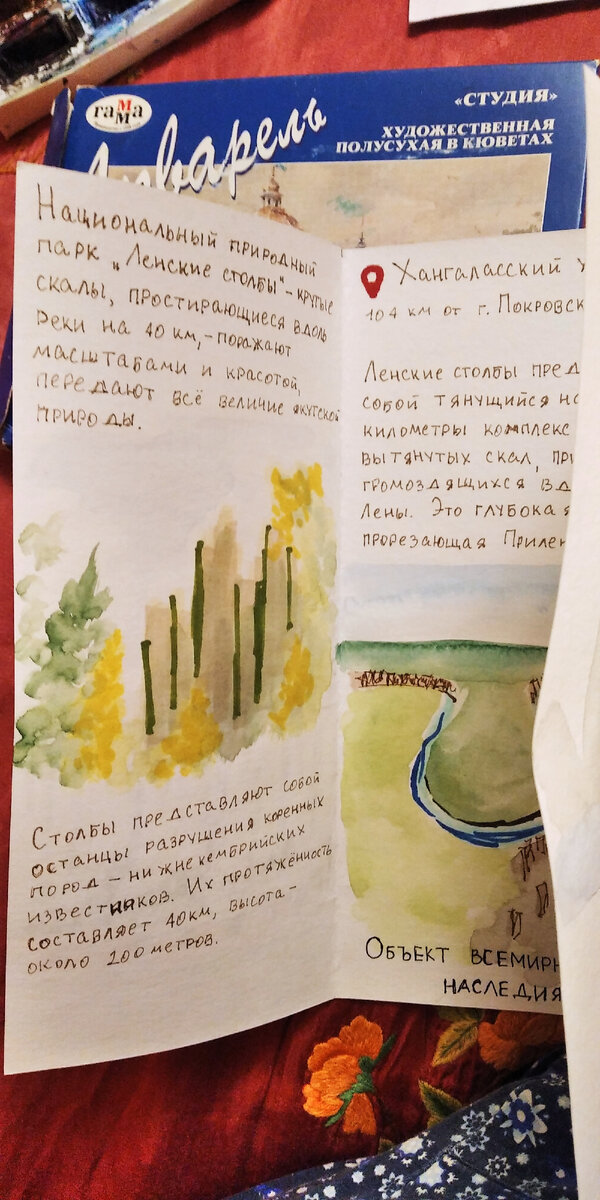 гаММа
Акварель
«СТУДИЯ»
ХУДОЖЕСТВЕННАЯ
ПОЛУСУХАЯ В КЮВЕТАХ
Национальный природный
парк „Ленские столбы" – крутые
скалы, простирающиеся вдоль
реки на 40 км, – поражают
масштабами и красотой,
передают всё величие якутской
природы.
Столбы представляют собой
останцы разрушения коренных
пород – нижнекембрийских
известняков. Их протяжённость
составляет 40км, высота –
около 200 метров.
Хангаласский у
104 км от г. Покровск
Ленские столбы пред
собой тянущийся на
километры комплекс
вытянутых скал, при
громоздящихся вд
Лены. Это глубокая
прорезающая Прилен
Объект всемирн
наследия